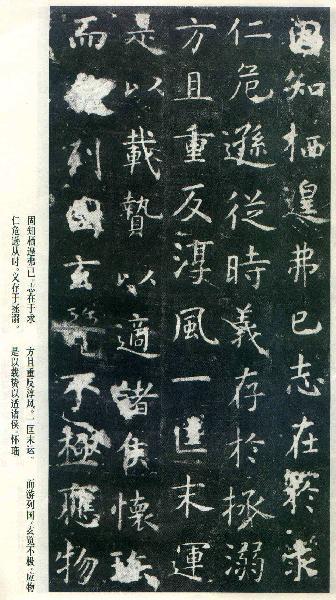 固知栖遑弗已志在於求
仁危遜從時義存於拯溺
方且重反淳風一匡末運
是以載贄以適諸侯懷
而列國玄覽不極應物
固知栖遑弗已,志在于求
仁危逊从时,义存于拯溺。
方且重反淳风,一匡末运。
是以载贽以适诸侯,怀
而游列国。玄览不极,应物